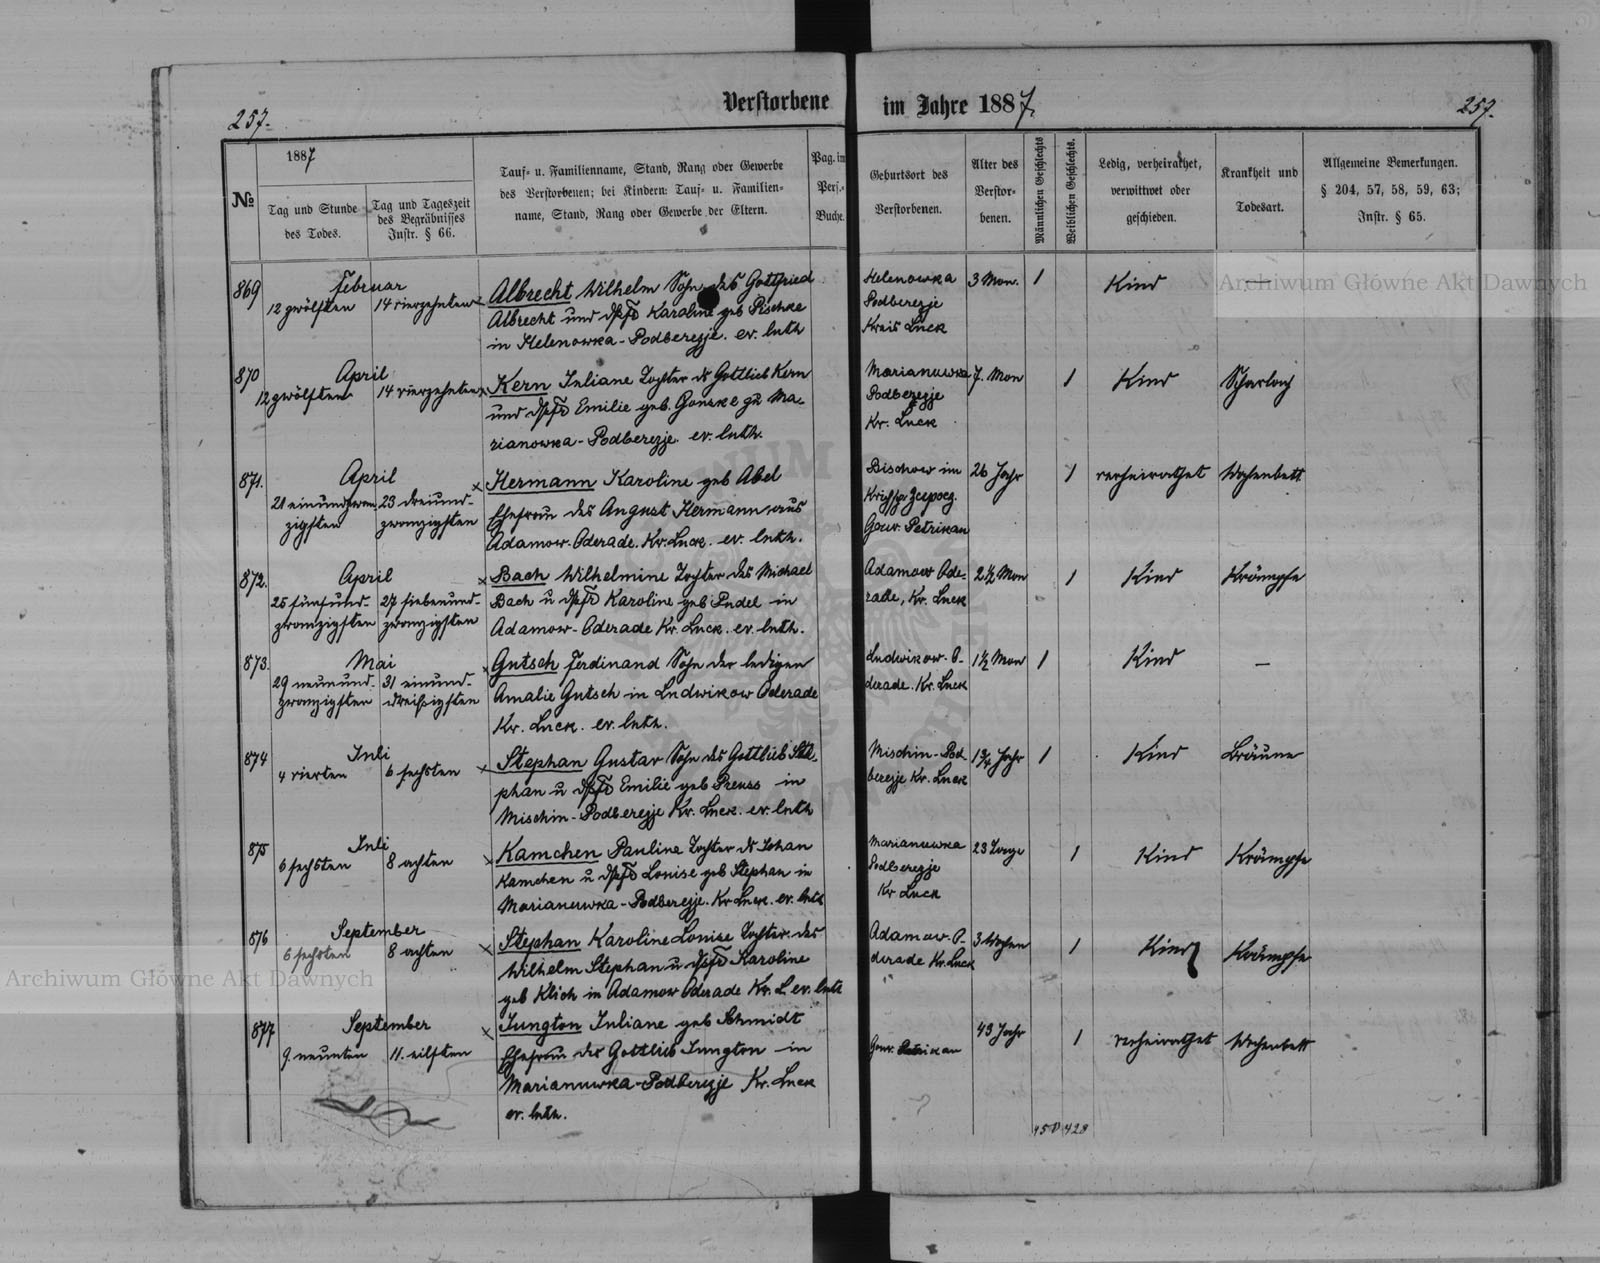 Verstorbene im Jahre 1887.
257.
257.
№
1887
Tag und Stunde
des Todes.
Tag und Tageszeit
des Begräbnisses
Instr. § 66.
Tauf- u. Familienname, Stand, Rang oder Gewerbe
des Verstorbenen; bei Kindern: Tauf- u. Familien-
name, Stand, Rang oder Gewerbe der Eltern.
Pag. im
Pers.-
Buche.
Geburtsort des
Verstorbenen.
Alter des
Verstor-
benen.
Männlichen Geschlechts
Weiblichen Geschlechts.
Ledig, verheirathet,
verwittwet oder
geschieden.
Krankheit und
Todesart.
Allgemeine Bemerkungen.
§ 204, 57, 58, 59, 63;
Instr. § 65.
869
Februar
12 zwölften
14 vierzehnten
Albrecht Wilhelm Sohn des Gottfried
Albrecht und Karoline geb Pischke
in Helenowka-Podberezje. ev. luth
Helenowka
Podberezje
Kreis Luck
3 Mon.
1
Kind
—
870
April
12 zwölften
14 vierzehnten
Kern Juliane Tochter ds Gottlieb Kern
und Emilie geb. Gonske zu Ma-
rianowka-Podberezje. ev. luth.
Marianuwka
Podberezje
Kr. Luck
7. Mon
1
Kind
Scharlach
871.
April
21 einundzwan
zigsten
23 dreiund-
zwanzigsten
Hermann Karoline geb Abel
Ehefrau des August Hermann aus
Adamow-Oderade. Kr. Luck. ev. luth.
Bischow im
Gouv. Petrikau
26 Jahr
1
verheirathet
Wochenbett
872.
April
25 fünfund-
zwanzigsten
27 siebenund-
zwanzigsten
Bach Wilhelmine Tochter des Michael
Bach u Karoline geb Pudel in
Adamow-Oderade Kr. Luck. ev. luth.
Adamow Ode-
rade, Kr. Luck
2½ Mon
1
Kind
Krämpfe
873.
Mai
29 neunund-
zwanzigsten
31 einund-
dreißigsten
Gutsch Ferdinand Sohn der ledigen
Amalie Gutsch in Ludwikow Oderade
Kr. Luck. ev. luth.
Ludwikow-O-
derade. Kr. Luck
1½ Mon
1
Kind
—
874
Juli
4 vierten
6 sechsten
Stephan Gustav Sohn des Gottlieb Ste-
phan u Emilie geb Preuss in
Mischin-Podberezje Kr. Luck. ev. luth
Mischin-Pod
berezje Kr. Luck
1¾ Jahr
1
Kind
Bräune
875
Juli
6 sechsten
8 achten
Kamchen Pauline Tochter ds Johan
Kamchen u Louise geb Stephan in
Marianuwka-Podberezje. Kr Luck. ev. luth
Marianuwka
Podberezje
Kr Luck
23 Tage
1
Kind
Krämpfe
876
September
6 sechsten
8 achten
Stephan Karoline Louise Tochter des
Wilhelm Stephan u Karoline
geb Klich in Adamow Oderade Kr. L. ev. luth
Adamow-O-
derade Kr. Luck
3 Wochen
1
Kind
Krämpfe
877
September
9. neunten
11. eilften
Jungton Juliane geb Schmidt
Ehefrau des Gottlieb Jungton in
Marianuwka-Podberezje Kr. Luck
ev. luth.
Gouv. Petrikau
43 Jahr
1
verheirathet
Wochenbett
428
Archiwum Główne Akt Dawnych
Archiwum Główne Akt Dawnych